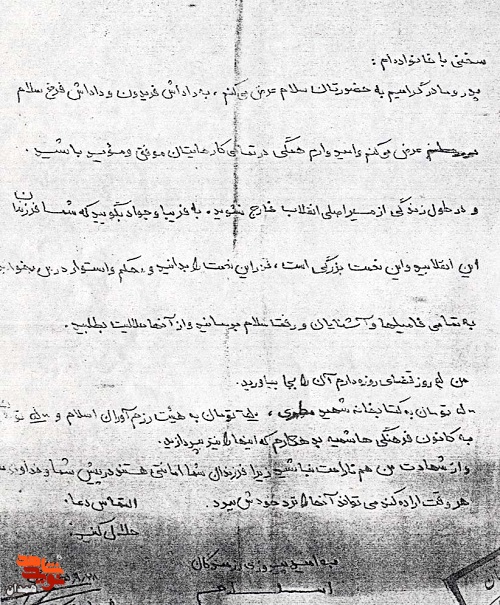 سخنی با خانواده‌ام :
پدر و مادر گرامیم به حضورتان سلام عرض می‌کنم ، به داداش فریدون و داداش فرخ سلام
عرض می‌کنم و امیدوارم همگی در تمامی کارهایتان موفق و مؤید باشید .
و در طول زندگی از مسیر اصلی انقلاب خارج نشوید . به فریبا و جواد بگویید که شما فرزندان
این انقلابید و این نعمت بزرگی است ، قدر این نعمت را بدانید و محکم و استوار درس بخوانید
به تمامی فامیلها و آشنایان و رفقا سلام برسانید و از آنها حلالیت بطلبید .
من روز قضای روزه دارم آن را بجا بیاورید .
تومان به کتابخانه شهید مطهری ، تومان به هیئت رزم‌آوران اسلام و
به کانون فرهنگی هاشمیه بدهکارم که اینها را نیز بپردازید .
و از شهادت من هم ناراحت نباشید زیرا فرزندان شما امانتی هستند در پیش شما و خداوند
هر وقت اراده کند می تواند آنها را نزد خودش ببرد . التماس دعا
حلالم کنید
به امید پیروزی رزمندگان
اسلام